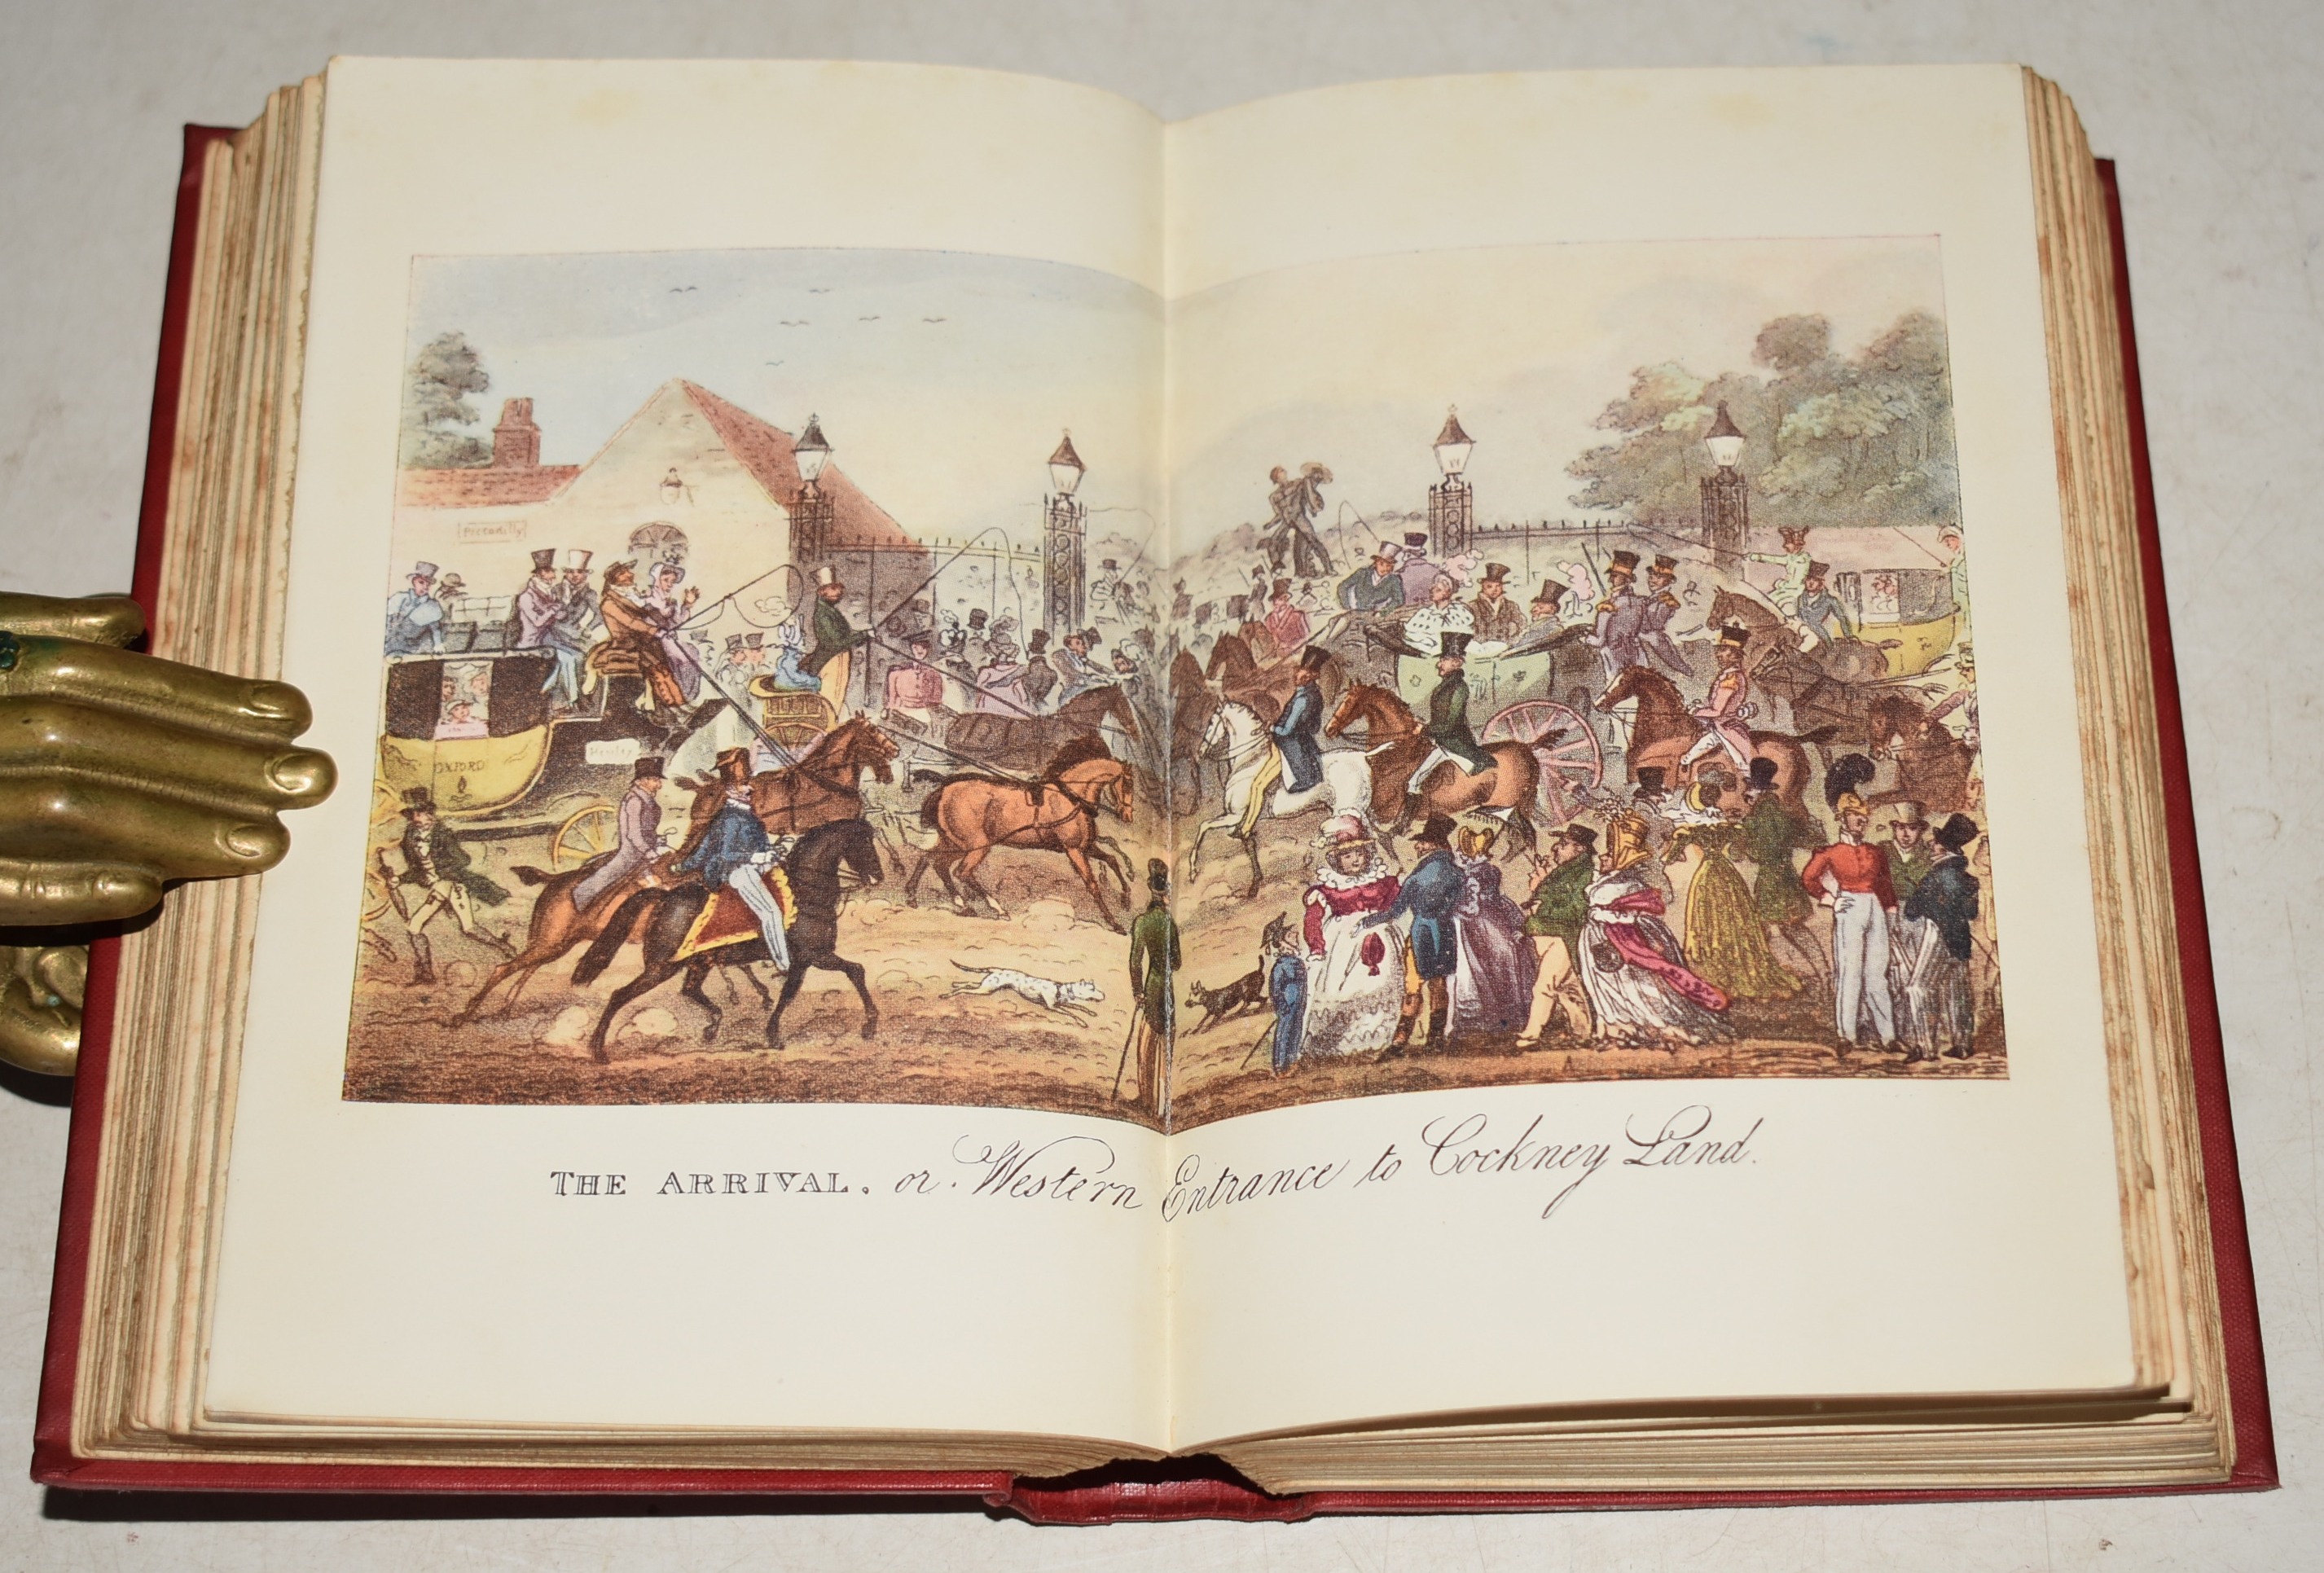 Piccadilly
Henley
OXFORD
THE ARRIVAL. or Western Entrance to Cockney Land.